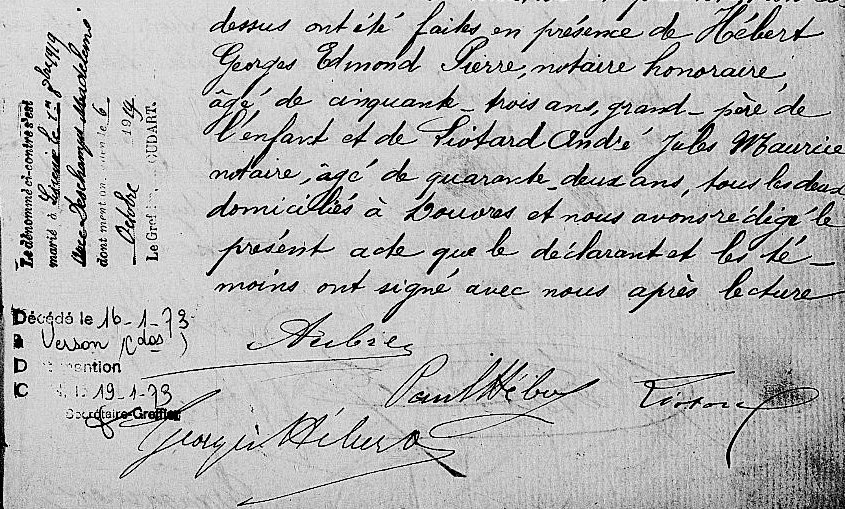 dessus ont été faites en présence de Hébert
Georges Edmond Pierre, notaire honoraire,
âgé de cinquante-trois ans, grand-père de
l'enfant et de Liotard André Jules Maurice
notaire, âgé de quarante-deux ans, tous les deux
domiciliés à Douvres et nous avons rédigé le
présent acte que le déclarant et les té-
moins ont signé avec nous après lecture
Aubrée
Paul Hébert
Liotard
Georges Hébert
Le dénommé ci-contre s'est
marié à le 1er 8bre 1919
avec Deschamps Madeleine
dont mention le 6
Octobre 1919
Le Greffier, OUDART.
Décédé le 16-1-73
à Verson (Cdos)
D mention
C 19-1-73
Secrétaire-Greffier